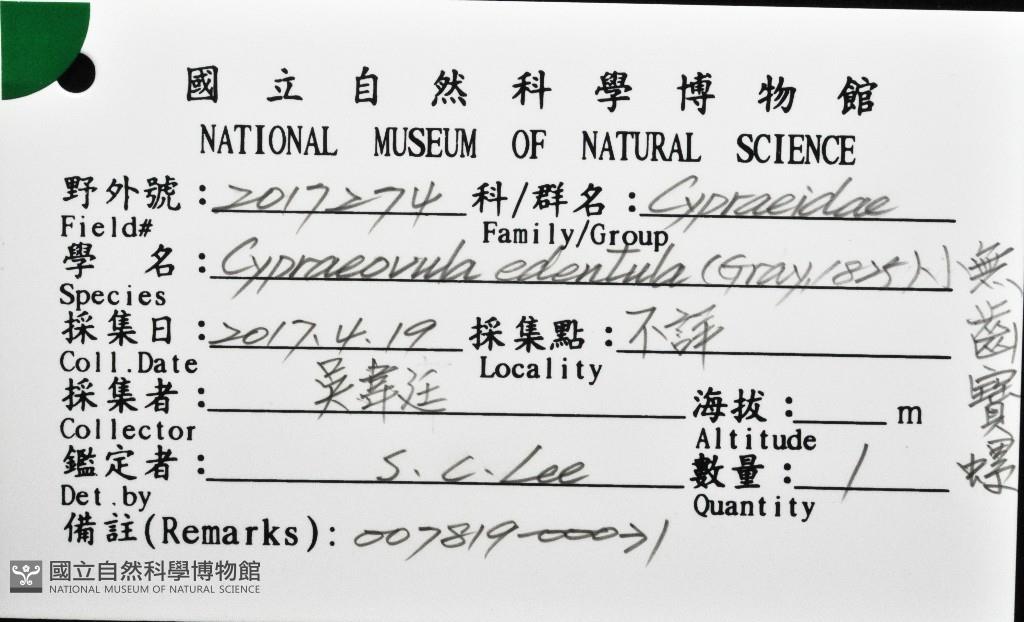 國立自然科學博物館
NATIONAL MUSEUM OF NATURAL SCIENCE
野外號：2017274 科/群名：Cypraeidae
Field# Family/Group
學 名：Cypraeovula edentula (Gray, 1825)
Species
採集日：2017.4.19 採集點：不詳
Coll.Date Locality
採集者：吳韋廷 海拔：m
Collector Altitude
鑑定者：S. C. Lee 數量：1
Det.by Quantity
備註(Remarks)：007819-00021
無齒寶螺
國立自然科學博物館
NATIONAL MUSEUM OF NATURAL SCIENCE